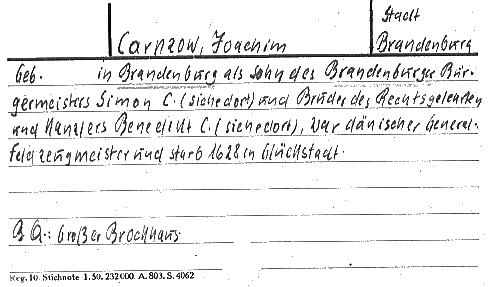 Stadt
Carpzow, Joachim
Brandenburg
Geb. in Brandenburg als Sohn des Brandenburger Bür-
germeisters Simon C. (siehe dort) und Bruder des Rechtsgelehrten
und Kanzlers Benedikt C. (siehe dort), war dänischer General-
feldzeugmeister und starb 1628 in Glückstadt.
B Q.: Großer Brockhaus
Reg. 10. Stichnote 1. 50. 232000. A. 803. S. 4062